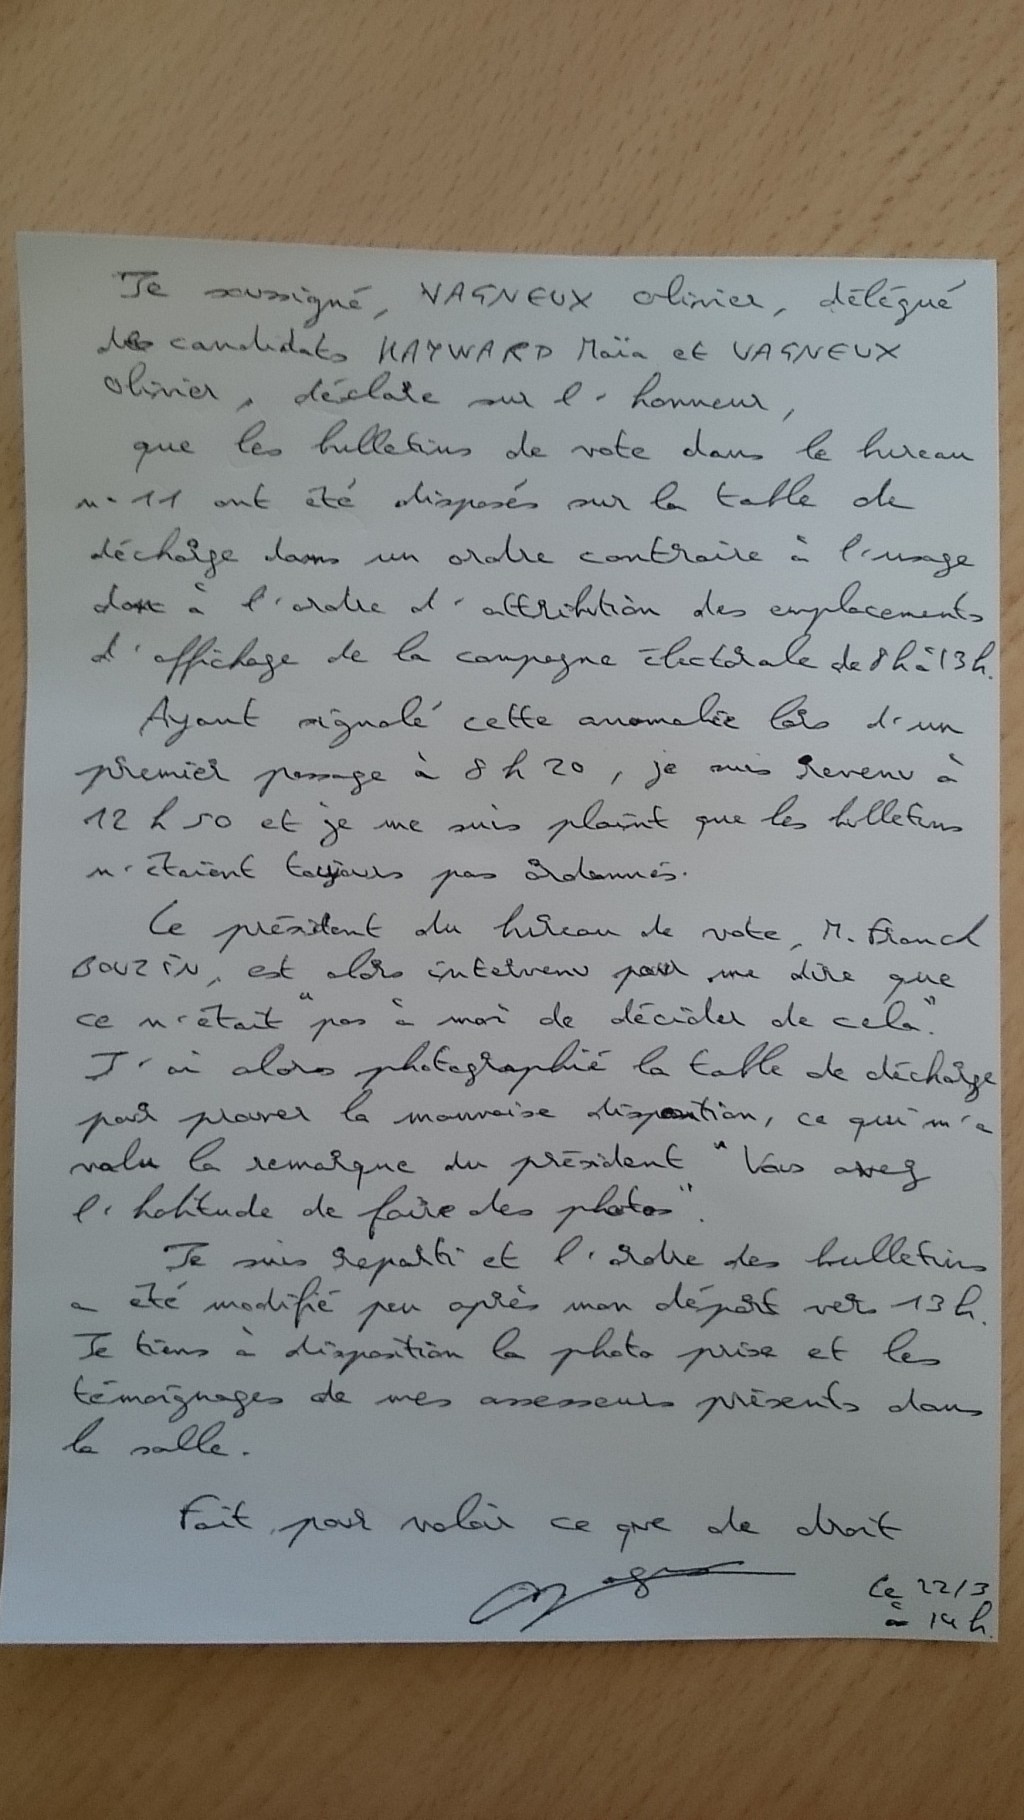 Je soussigné, VAGNEUX Olivier, délégué
des candidats HAYWARD Maïa et VAGNEUX
Olivier, déclare sur l'honneur,
que les bulletins de vote dans le bureau
n°11 ont été disposés sur la table de
décharge dans un ordre contraire à l'usage
donc à l'ordre d'attribution des emplacements
d'affichage de la campagne électorale de 8h à 13h.
Ayant signalé cette anomalie lors d'un
premier passage à 8h20, je suis revenu à
12h50 et je me suis plaint que les bulletins
n'étaient toujours pas ordonnés.
Le président du bureau de vote, M. Franck
BOUZIN, est alors intervenu pour me dire que
ce n'était "pas à moi de décider de cela".
J'ai alors photographié la table de décharge
pour prouver la mauvaise disposition, ce qui m'a
valu la remarque du président "Vous avez
l'habitude de faire des photos".
Je suis reparti et l'ordre des bulletins
a été modifié peu après mon départ vers 13h.
Je tiens à disposition la photo prise et les
témoignages de mes assesseurs présents dans
la salle.
Fait pour valoir ce que de droit
Le 22/3
à 14h.